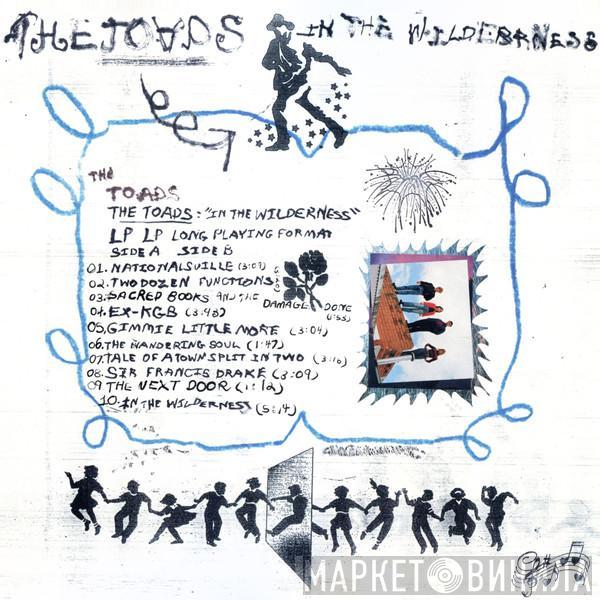 THE TOADS IN THE WILDERNESS
THE
TOADS
THE TOADS: "IN THE WILDERNESS"
LP LP LONG PLAYING FORMAT
SIDE A SIDE B
01. NATIONALSVILLE (3:09)
02. TWO DOZEN FUNCTIONS
03. SACRED BOOKS AND THE DAMAGE DONE (1:55)
04. EX-KGB (3:48)
05. GIMMIE LITTLE MORE (3:04)
06. THE WANDERING SOUL (1:47)
07. TALE OF A TOWN SPLIT IN TWO (3:16)
08. SIR FRANCIS DRAKE (3:09)
09 THE NEXT DOOR (1:12)
10. IN THE WILDERNESS (5:14)
МАРКЕТ ВИНИЛА